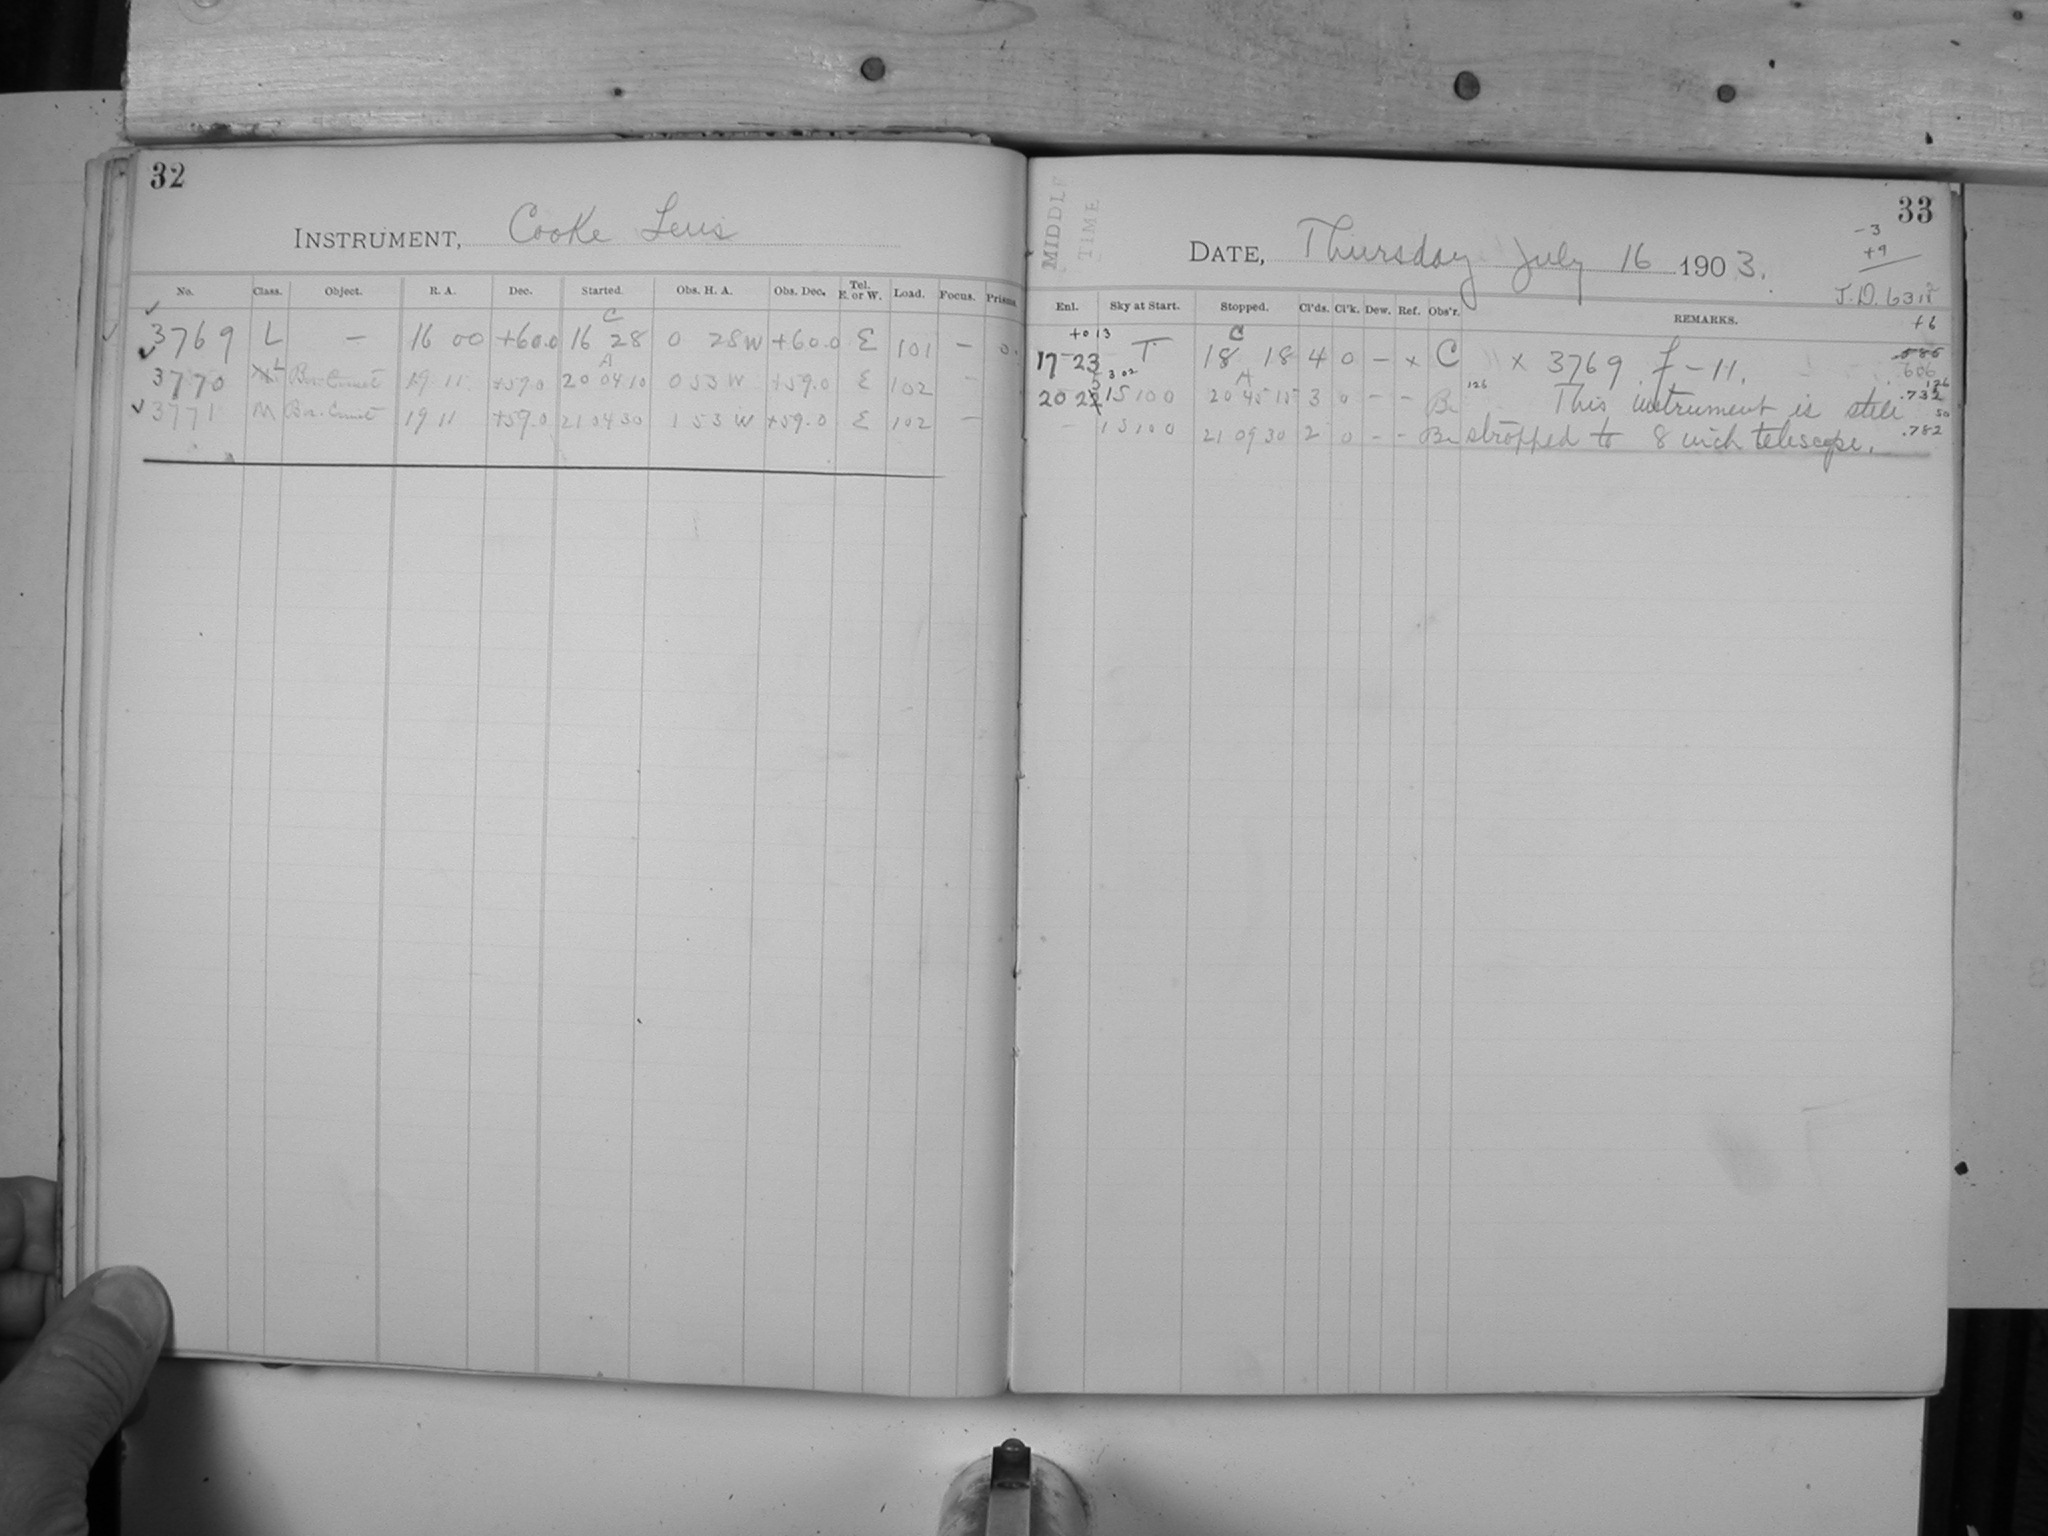 32
INSTRUMENT, Cooke Lens
No. Class. Object. R. A. Dec. Started. Obs. H. A. Obs. Dec. Tel. E. or W. Load. Focus. Prisms.
C
3769 L — 16 00 +60.0 16 28 0 28 W +60.0 E 101 — 0.
A
3770 L 19 11 +59.0 20 04 10 0 53 W +59.0 E 102 —
3771 M 19 11 +59.0 21 04 30 1 53 W +59.0 E 102 —
33
MIDDLE
TIME
DATE, Thursday July 16 1903.
-3
+9
J.D. 631
Enl. Sky at Start. Stopped. Cl'ds. Cl'k. Dew. Ref. Obs'r. REMARKS.
+6
+0 13 C
17 23 T 18 18 4 0 — x C x 3769 f-11.
606
302 A 126 126
20 22 15 100 20 45 15 3 0 - - Be This instrument is still .732
50
- 15 100 21 09 30 2 0 - - Be stropped to 8 inch telescope. .782